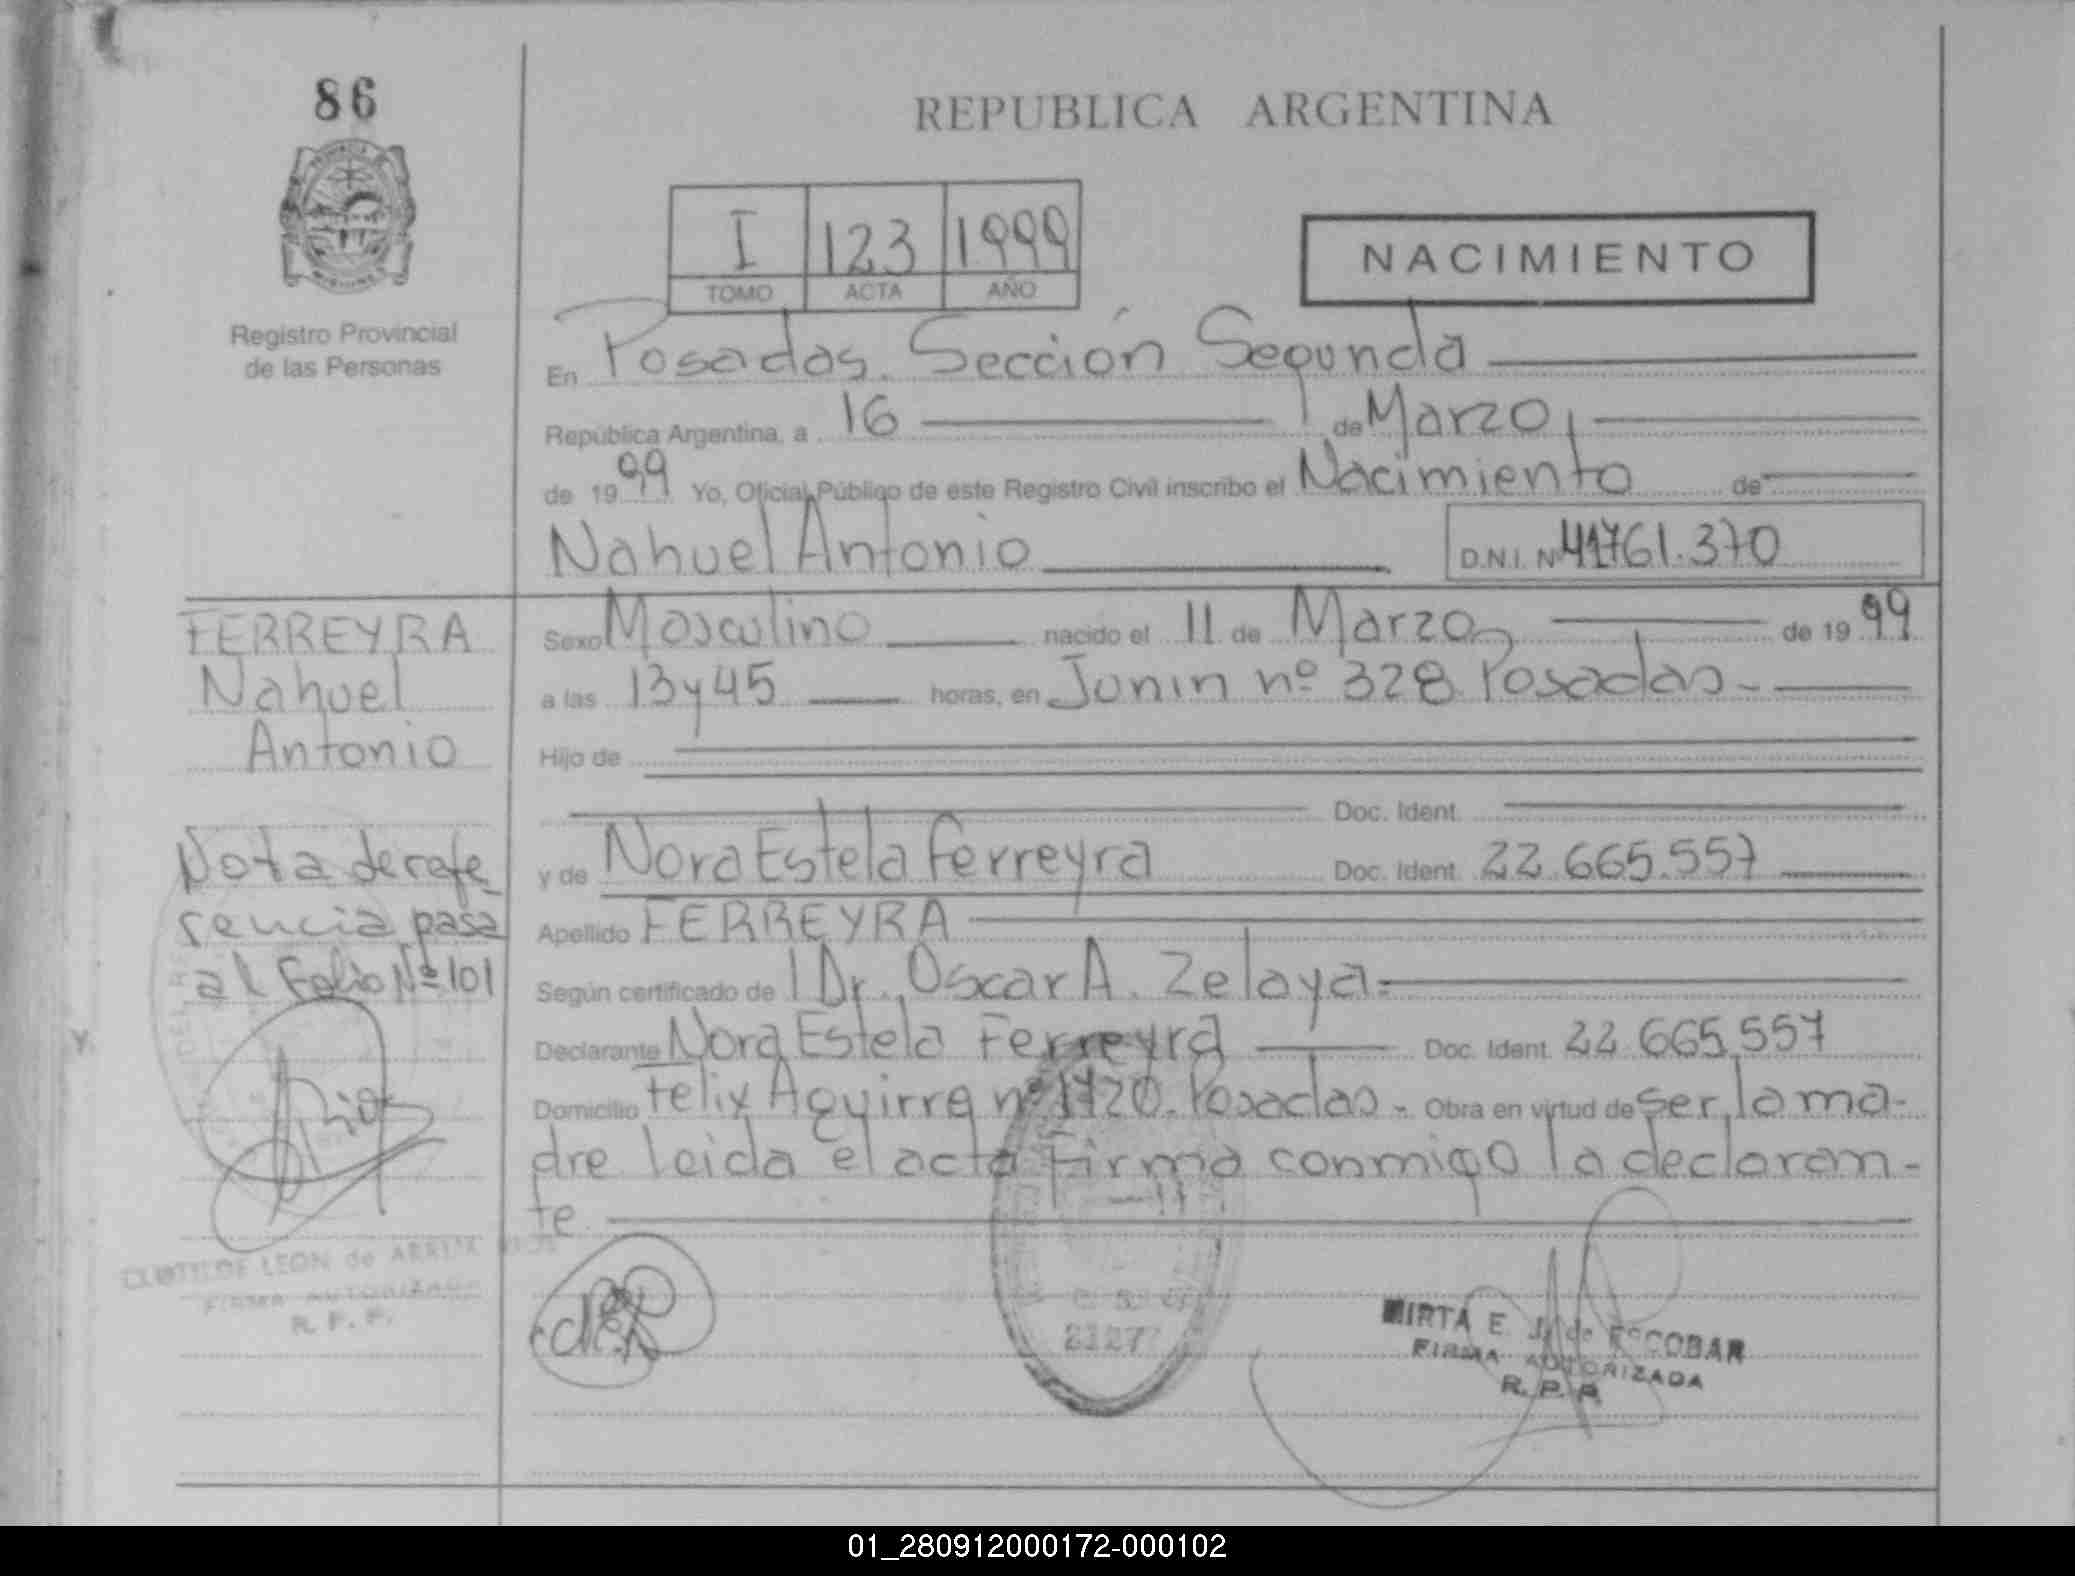 86
REPUBLICA ARGENTINA
I 123 1999
TOMO ACTA AÑO
NACIMIENTO
Registro Provincial
de las Personas
En Posadas. Sección Segunda
República Argentina, a 16 de Marzo,
de 1999 Yo, Oficial Público de este Registro Civil inscribo el Nacimiento de
Nahuel Antonio D.N.I. Nº 41761.370
FERREYRA
Nahuel
Antonio
Sexo Masculino nacido el 11 de Marzo, de 1999
a las 13 y 45 horas, en Junin nº 328 Posadas-
Hijo de
Doc. Ident.
y de Nora Estela Ferreyra Doc. Ident. 22.665.557
Apellido FERREYRA
Según certificado de l Dr. Oscar A. Zelaya.
Declarante Nora Estela Ferreyra Doc. Ident. 22.665.557
Domicilio Felix Aguirre nº 1720. Posadas- Obra en virtud de ser la ma-
dre leida el acta firma conmigo la declaran-
te
Nota de refe
rencia pasa
al Folio Nº 101
CLOTILDE LEON de
FIRMA AUTORIZADA
R. P. P.
MIRTA E. J. de ESCOBAR
FIRMA AUTORIZADA
R. P. P.
01_280912000172-000102